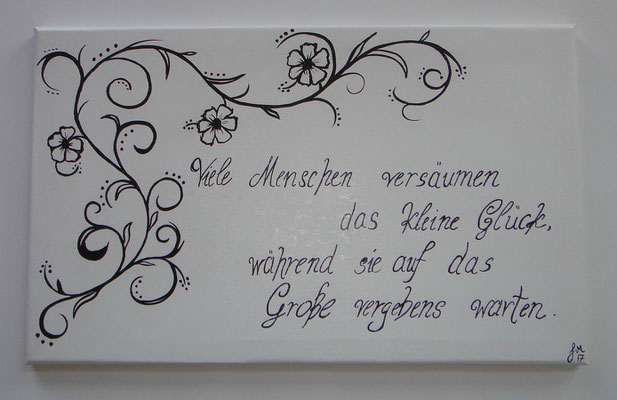 Viele Menschen versäumen
das kleine Glück,
während sie auf das
Große vergebens warten.
17